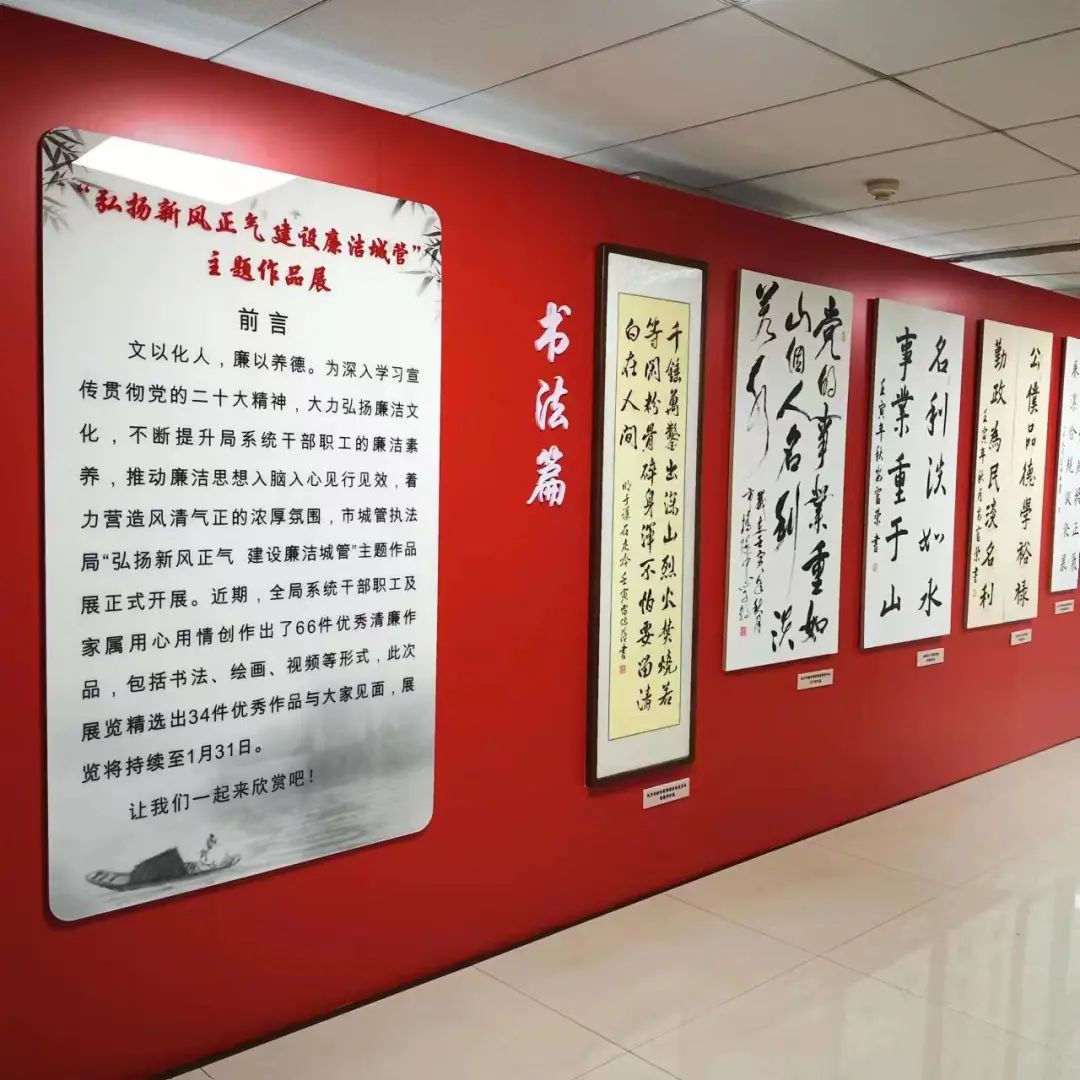 “弘扬新风正气 建设廉洁城管”
主题作品展
前言
文以化人，廉以养德。为深入学习宣
传贯彻党的二十大精神，大力弘扬廉洁文
化，不断提升局系统干部职工的廉洁素
养，推动廉洁思想入脑入心见行见效，着
力营造风清气正的浓厚氛围，市城管执法
局“弘扬新风正气 建设廉洁城管”主题作品
展正式开展。近期，全局系统干部职工及
家属用心用情创作出了66件优秀清廉作
品，包括书法、绘画、视频等形式，此次
展览精选出34件优秀作品与大家见面，展
览将持续至1月31日。
让我们一起来欣赏吧！
书法篇
千锤萬鑿出深山烈火焚燒若
等閑粉骨碎身渾不怕要留清
白在人间
党的事業重如
山個人名利淡
若水
名利淡如水
事業重于山
壬寅年秋安富荣書
公僕品德學裕禄
勤政為民淡名利
壬寅年秋月安富荣書